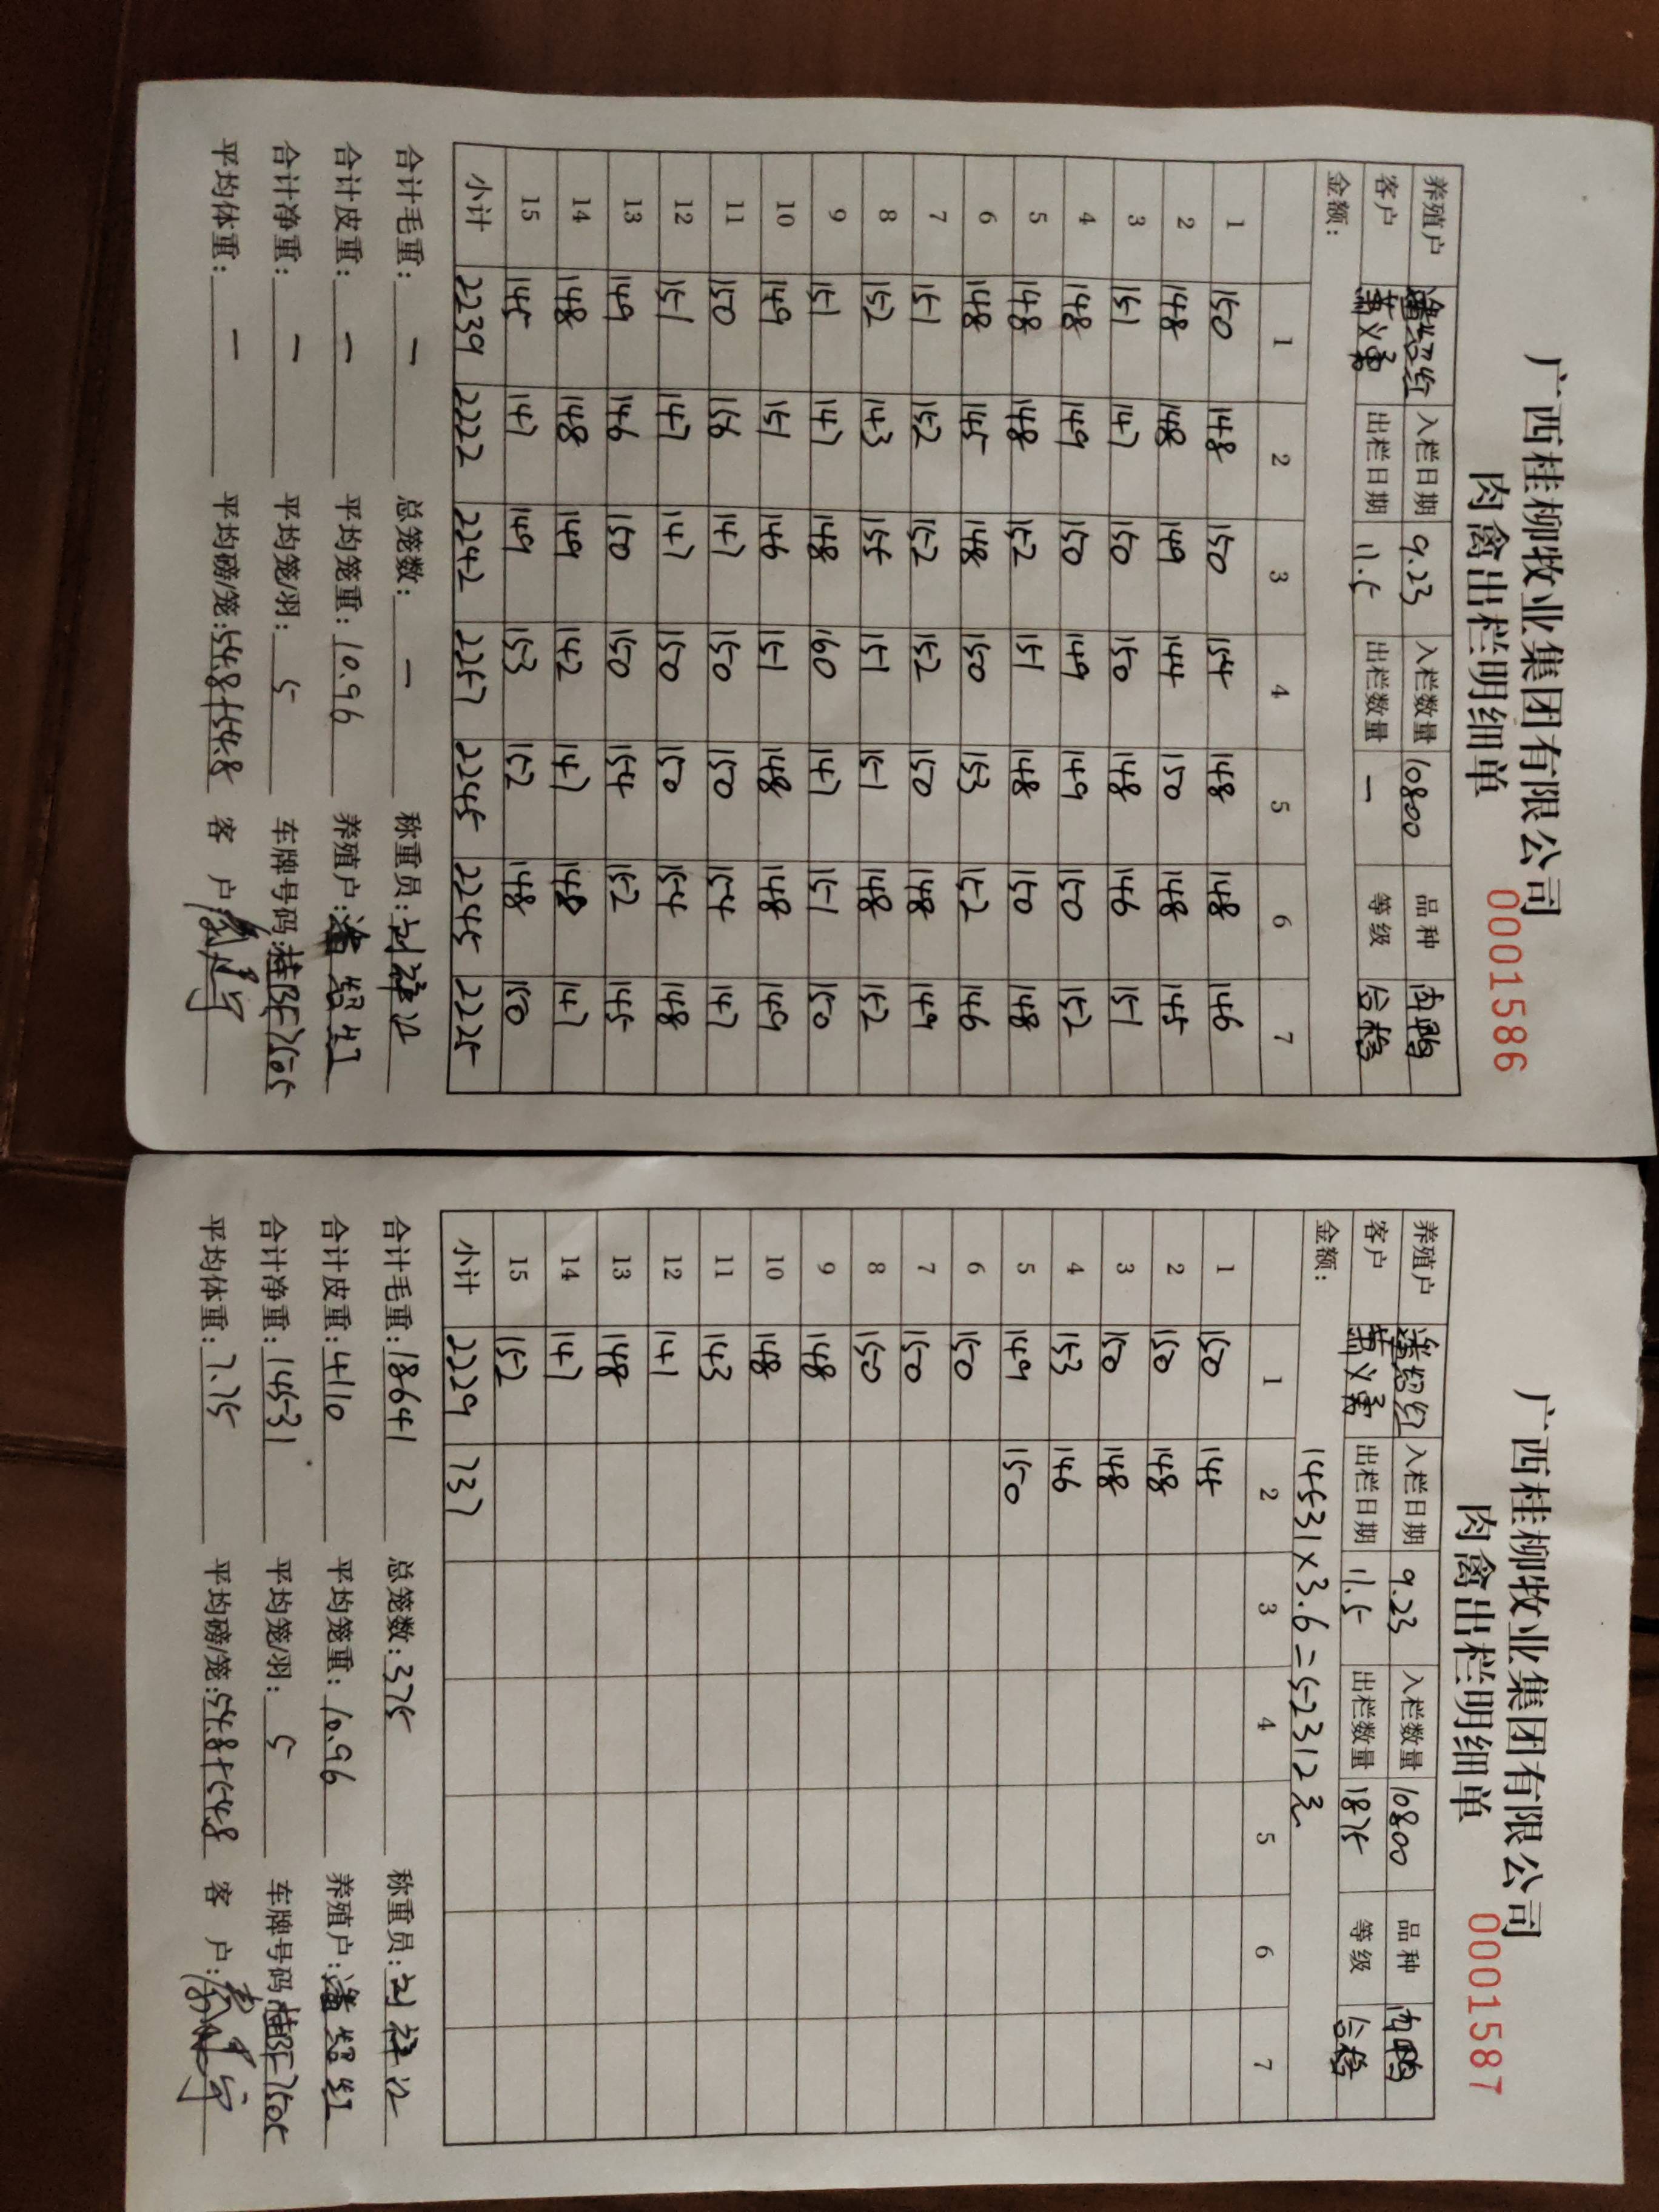 广西桂柳牧业集团有限公司
肉禽出栏明细单 0001586
养殖户 潘绍红 入栏日期 9.23 入栏数量 10800 品种 肉鸭
客户 出栏日期 11.5 出栏数量 — 等级 合格
金额：
1 2 3 4 5 6 7
1 150 148 150 154 148 148 146
2 148 148 149 144 150 148 145
3 151 147 150 150 148 146 151
4 148 149 150 149 149 150 152
5 148 148 152 151 148 150 148
6 148 145 148 150 153 152 146
7 151 152 152 152 150 148 149
8 152 143 155 151 151 148 152
9 151 147 148 160 147 151 150
10 149 151 146 151 148 148 149
11 150 156 147 150 150 154 147
12 151 147 147 150 150 154 148
13 149 146 150 150 154 152 145
14 148 148 149 142 147 148 147
15 145 147 149 153 152 148 150
小计 2239 2222 2242 2257 2245 2245 2225
合计毛重：— 总笼数：— 称重员：
合计皮重：— 平均笼重：10.96 养殖户：潘绍红
合计净重：— 平均笼/羽：5 车牌号码：
平均体重：— 平均磅/笼：54.8+54.8 客 户：
广西桂柳牧业集团有限公司
肉禽出栏明细单 0001587
养殖户 潘绍红 入栏日期 9.23 入栏数量 10800 品种 肉鸭
客户 出栏日期 11.5 出栏数量 1875 等级 合格
金额： 14531×3.6=52312元
1 2 3 4 5 6 7
1 150 145
2 150 148
3 150 148
4 153 146
5 149 150
6 150
7 150
8 150
9 148
10 148
11 143
12 141
13 148
14 147
15 152
小计 2229 737
合计毛重：18641 总笼数：375 称重员：
合计皮重：4110 平均笼重：10.96 养殖户：潘绍红
合计净重：14531 平均笼/羽：5 车牌号码：
平均体重：7.75 平均磅/笼：54.8+54.8 客 户：